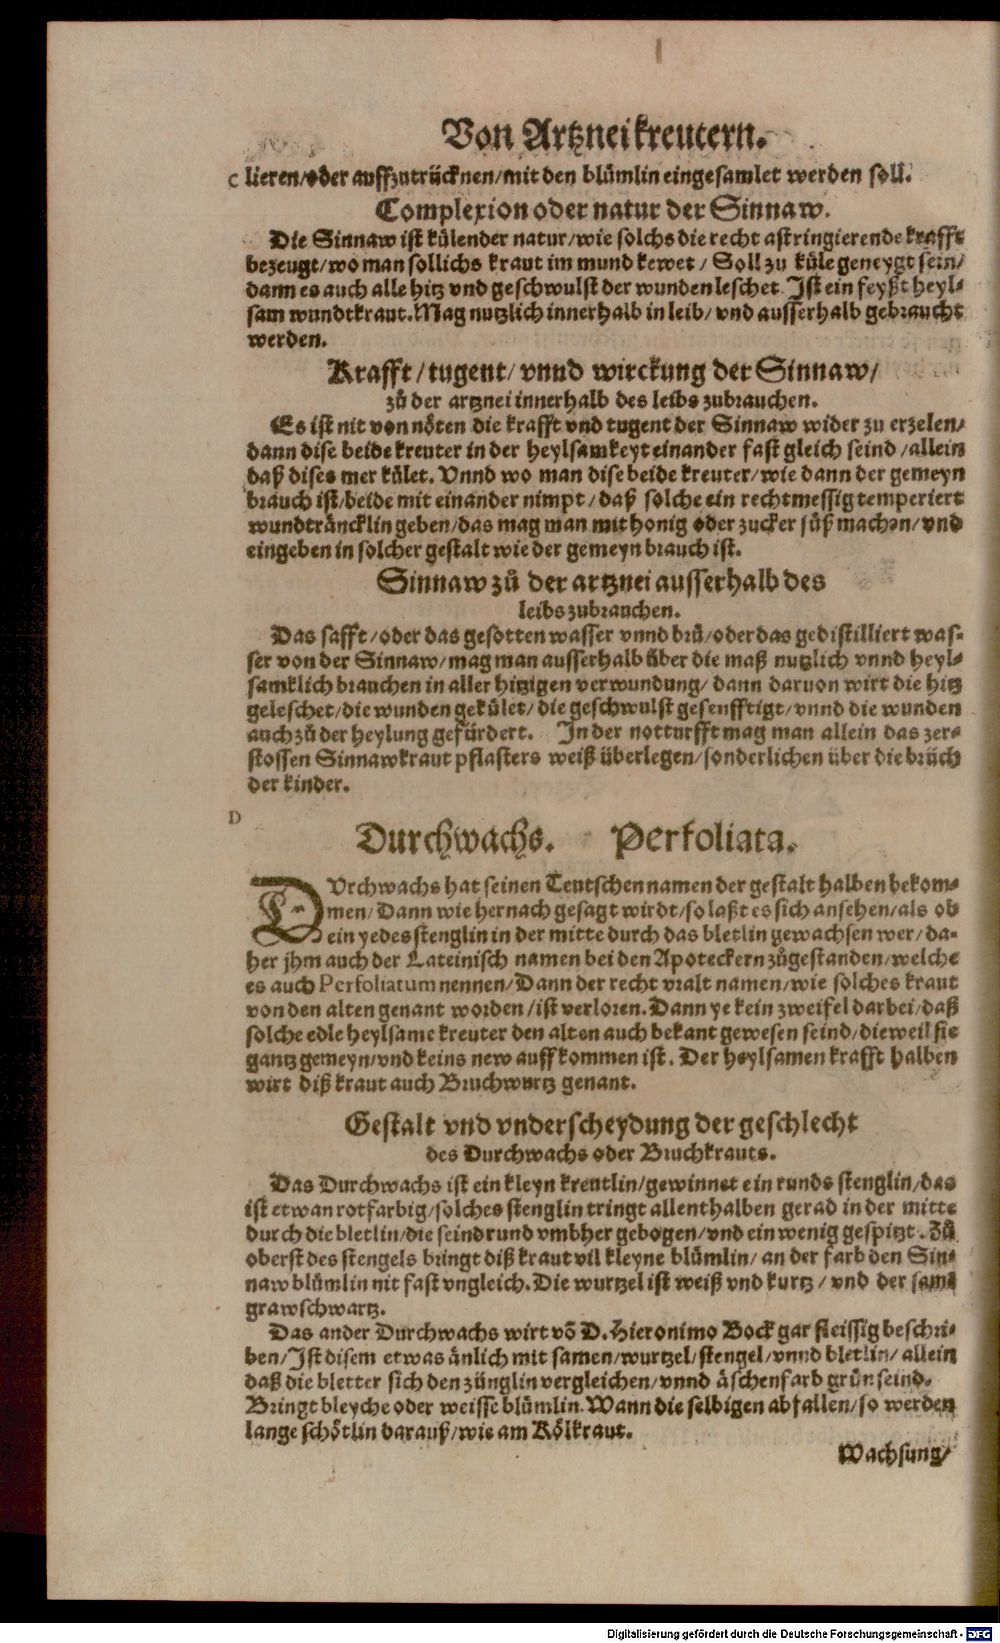 Von Artzneikreutern.
C lieren/oder auffzutrücknen/mit den blümlin eingesamlet werden soll.
Complexion oder natur der Sinnaw.
Die Sinnaw ist külender natur/wie solchs die recht astringierende krafft
bezeugt/wo man sollichs kraut im mund kewet/ Soll zu küle geneygt sein/
dann es auch alle hitz vnd geschwulst der wunden leschet. Ist ein feyßt heyl⸗
sam wundtkraut. Mag nutzlich innerhalb in leib/ vnd ausserhalb gebraucht
werden.
Krafft/tugent/ vnnd wirckung der Sinnaw/
zů der artznei innerhalb des leibs zubrauchen.
Es ist nit von nöten die krafft vnd tugent der Sinnaw wider zu erzelen/
dann dise beide kreuter in der heylsamkeyt einander fast gleich seind/allein
daß dises mer kület. Vnnd wo man dise beide kreuter/wie dann der gemeyn
brauch ist/beide mit einander nimpt/daß solche ein rechtmessig temperiert
wundträncklin geben/das mag man mit honig oder zucker süß machen/vnd
eingeben in solcher gestalt wie der gemeyn brauch ist.
Sinnaw zů der artznei ausserhalb des
leibs zubrauchen.
Das safft/oder das gesotten wasser vnnd brü/oder das gedistilliert was⸗
ser von der Sinnaw/mag man ausserhalb über die maß nutzlich vnnd heyl⸗
samklich brauchen in aller hitzigen verwundung/ dann daruon wirt die hitz
geleschet/die wunden gekület/die geschwulst gesenfftigt/vnnd die wunden
auch zů der heylung gefürdert. In der notturfft mag man allein das zer⸗
stossen Sinnawkraut pflasters weiß überlegen/sonderlichen über die brüch
der kinder.
D
Durchwachs. Perfoliata.
DVrchwachs hat seinen Teutschen namen der gestalt halben bekom⸗
men/Dann wie hernach gesagt wirdt/so laßt es sich ansehen/als ob
ein yedes stenglin in der mitte durch das bletlin gewachsen wer/da⸗
her jhm auch der Lateinisch namen bei den Apoteckern zůgestanden/welche
es auch Perfoliatum nennen/Dann der recht vralt namen/wie solches kraut
von den alten genant worden/ist verloren. Dann ye kein zweifel darbei/daß
solche edle heylsame kreuter den alten auch bekant gewesen seind/dieweil sie
gantz gemeyn/vnd keins new auffkommen ist. Der heylsamen krafft halben
wirt diß kraut auch Bruchwurtz genant.
Gestalt vnd vnderscheydung der geschlecht
des Durchwachs oder Bruchkrauts.
Das Durchwachs ist ein kleyn kreutlin/gewinnet ein runds stenglin/das
ist etwan rotfarbig/solches stenglin tringt allenthalben gerad in der mitte
durch die bletlin/die seind rund vmbher gebogen/vnd ein wenig gespitzt. Zů
oberst des stengels bringt diß kraut vil kleyne blümlin/an der farb den Sin⸗
naw blümlin nit fast vngleich. Die wurtzel ist weiß vnd kurtz/ vnd der same
grawschwartz.
Das ander Durchwachs wirt võ D. Hieronimo Bock gar fleissig beschri⸗
ben/Ist disem etwas änlich mit samen/wurtzel/stengel/vnnd bletlin/ allein
daß die bletter sich den zünglin vergleichen/vnnd äschenfarb grün seind.
Bringt bleyche oder weisse blümlin. Wann die selbigen abfallen/so werden
lange schötlin darauß/wie am Kölkraut.
Wachsung/
Digitalisierung gefördert durch die Deutsche Forschungsgemeinschaft - DFG